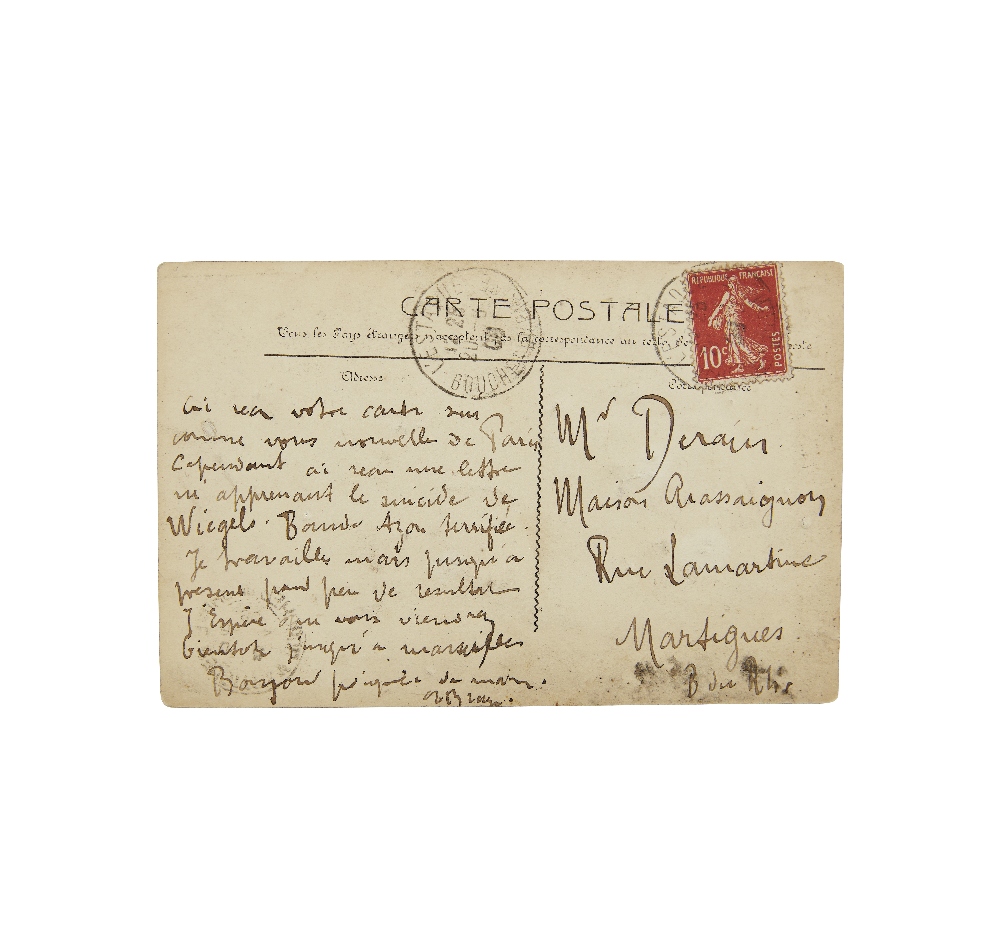 CARTE POSTALE
Tous les Pays étrangers n'acceptent pas la correspondance au recto
L'ESTAQUE
BOUCHES
08
RÉPUBLIQUE FRANÇAISE
10c
POSTES
Adresse
Correspondance
ai recu votre carte suis
comme vous nouvelle de Paris
Cependant ai recu une lettre
m'apprenant le suicide de
Wiegels. Bande Azon terrifiée.
Je travailles mais jusqu'à
present peu de resultat
J'Espère vous viendrez
bientot jusqu'à marseilles
Bonjour poignée de main.
GBraque
Mr Derain
Maison
Rue Lamartine
Martigues
B du Rhône